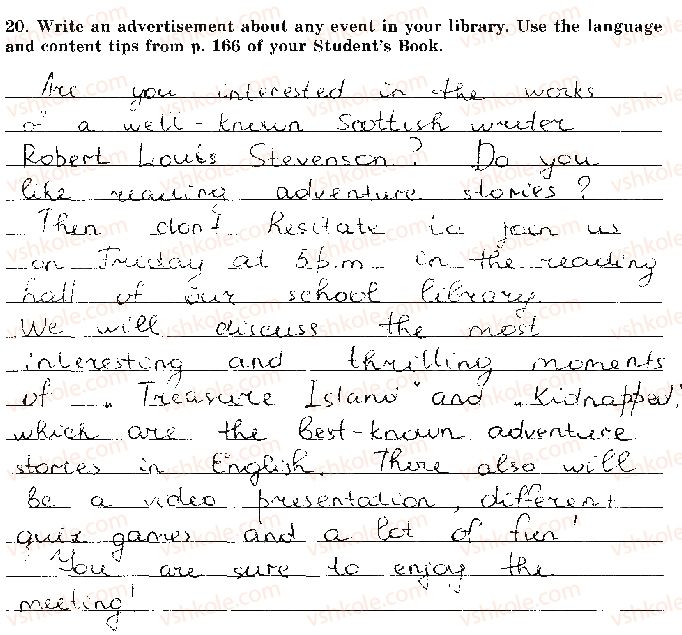 20. Write an advertisement about any event in your library. Use the language
and content tips from p. 166 of your Student's Book.
Are you interested in the works
of a well-known Scottish writer
Robert Louis Stevenson? Do you
like reading adventure stories?
Then don't hesitate to join us
on Friday at 5 p.m. in the reading
hall of our school library.
We will discuss the most
interesting and thrilling moments
of „Treasure Island" and „Kidnapped",
which are the best-known adventure
stories in English. There also will
be a video presentation, different
quiz games and a lot of fun!
You are sure to enjoy the
meeting!
vshkole.com